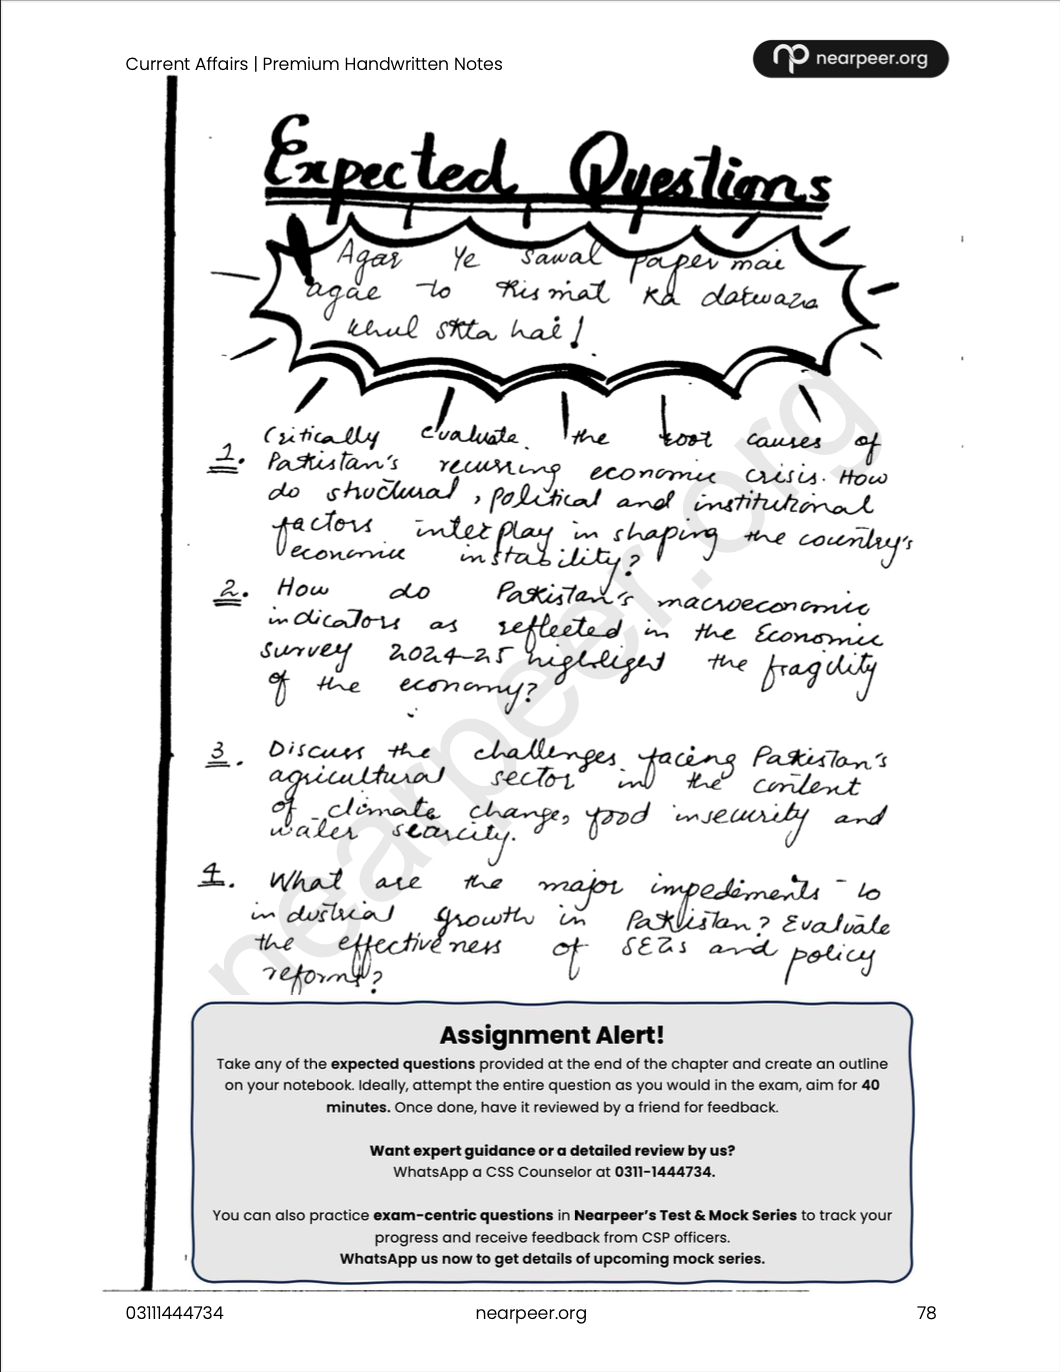 Current Affairs | Premium Handwritten Notes
nearpeer.org
Expected Questions
Agar Ye sawal paper mai
agae to Kismat ka darwaza
khul skta hai!
1. Critically evaluate the root causes of
Pakistan's recurring economic crisis. How
do structural, political and institutional
factors interplay in shaping the country's
economic instability?
2. How do Pakistan's macroeconomic
indicators as reflected in the Economic
survey 2024-25 highlight the fragility
of the economy?
3. Discuss the challenges facing Pakistan's
agricultural sector in the context
of climate change, food insecurity and
water scarcity.
4. What are the major impediments to
industrial growth in Pakistan? Evaluate
the effectiveness of SEZs and policy
reforms?
nearpeer.org
Assignment Alert!
Take any of the expected questions provided at the end of the chapter and create an outline
on your notebook. Ideally, attempt the entire question as you would in the exam, aim for 40
minutes. Once done, have it reviewed by a friend for feedback.
Want expert guidance or a detailed review by us?
WhatsApp a CSS Counselor at 0311-1444734.
You can also practice exam-centric questions in Nearpeer's Test & Mock Series to track your
progress and receive feedback from CSP officers.
WhatsApp us now to get details of upcoming mock series.
03111444734
nearpeer.org
78